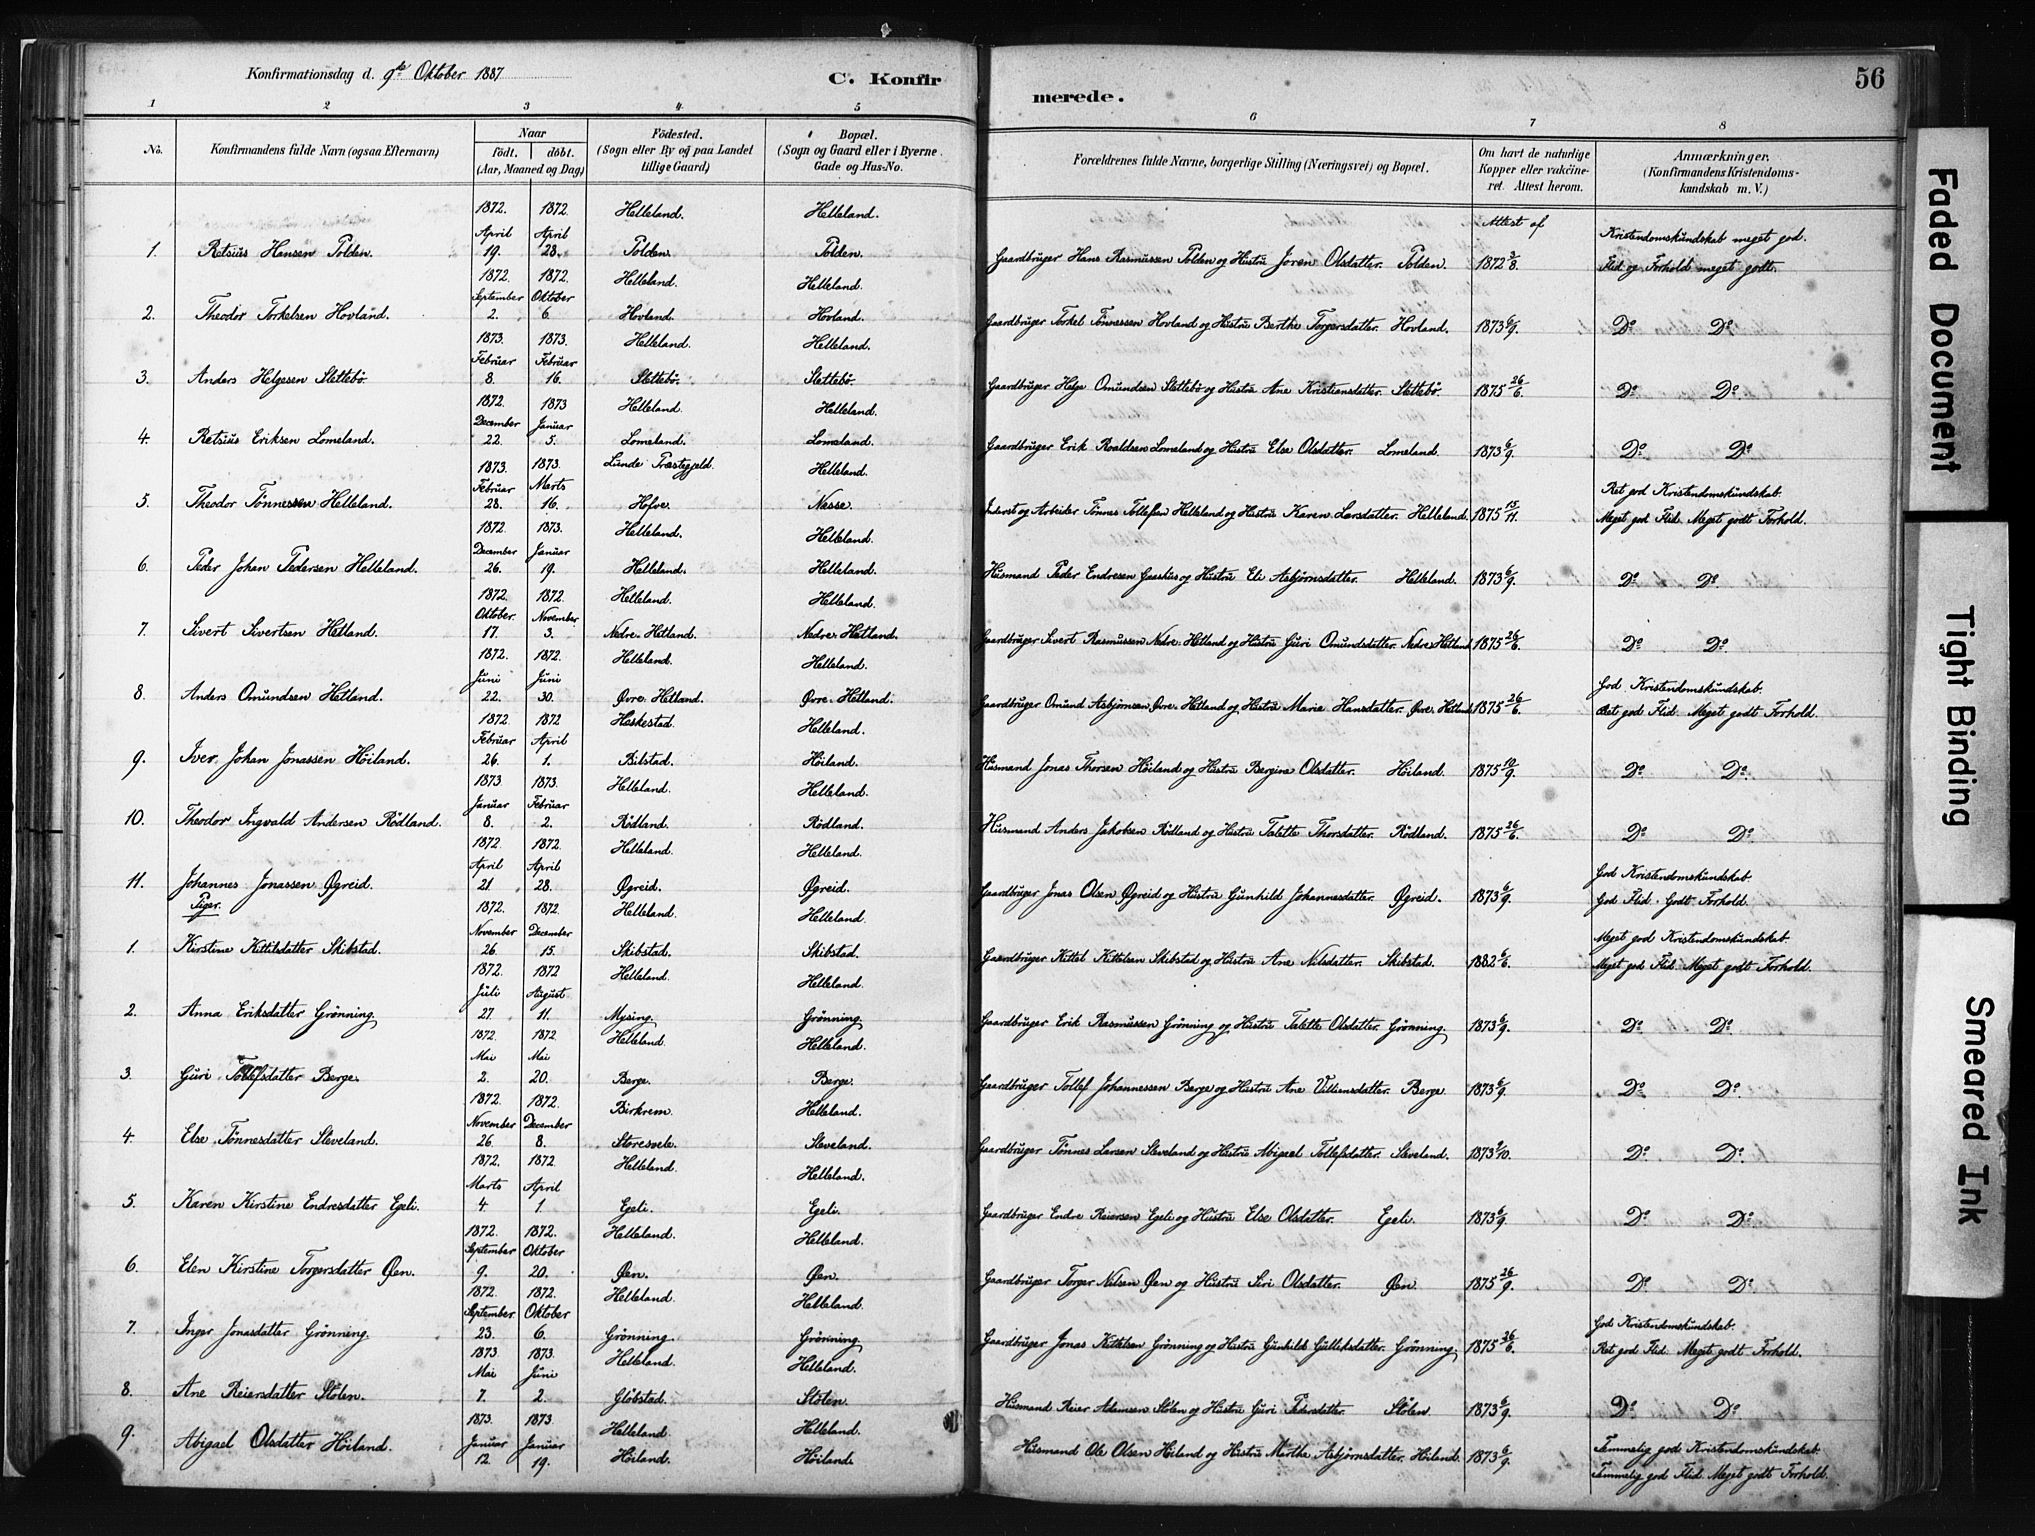 Konfirmationsdag d. 9de Oktober 1887
C. Konfir
merede.
56
1 2 3 4 5 6 7 8
No. Konfirmandens fulde Navn (ogsaa Efternavn) Naar födt. döbt. (Aar, Maaned og Dag) Födested. (Sogn eller By og paa Landet tillige Gaard) Bopæl. (Sogn og Gaard eller i Byerne Gade og Hus-No. Forældrenes fulde Navne, borgerlige Stilling (Næringsvei) og Bopæl. Om havt de naturlige Kopper eller vakcineret. Attest herom. Anmærkninger. (Konfirmandens Kristendomskundskab m. V.)
1872. 1872. Helleland. Helleland. Attest af Kristendomskundskab meget god.
April April
1. Retsius Hansen Polden. 19. 28. Polden. Polden. Gaardbruger Hans Rasmussen Polden og Hustru Joren Olsdatter. Polden. 1872 3/8. Flid og Forhold meget godt.
1872. 1872. Helleland. Helleland.
September Oktober
2. Theodor Torkelsen Hovland. 2. 6. Hovland. Hovland. Gaardbruger Torkel Tønnessen Hovland og Hustru Berthe Torgersdatter. Hovland. 1873 6/9. Do Do
1873. 1873. Helleland. Helleland.
Februar Februar
3. Anders Helgesen Slettebö. 8. 16. Slettebö. Slettebö. Gaardbruger Helge Omundsen Slettebö og Hustru Ane Kristiansdatter. Slettebö. 1875 26/6. Do Do
1872. 1873 Helleland. Helleland.
December Januar
4. Retsius Eriksen Lomeland. 22. 5. Lomeland. Lomeland. Gaardbruger Erik Roaldsen Lomeland og Hustru Else Olsdatter. Lomeland. 1873 6/9. Do Do
1873. 1873. Lunde Præstegjeld. Helleland.
Februar Marts Ret god Kristendomskundskab.
5. Theodor Tønnessen Helleland. 28. 16. Hofve. Nasse. Inderst og Arbeider Tønnes Tollefsen Helleland og Hustru Karen Larsdatter. Helleland. 1875 15/11. Meget god Flid. Meget godt Forhold.
1872. 1873. Helleland. Helleland.
December Januar
6. Peder Johan Pedersen Helleland. 26. 19. Helleland. Helleland. Husmand Peder Endresen Gaashus og Hustru Eli Asbjørnsdatter. Helleland. 1873 6/9. Do Do
1872. 1872. Helleland. Helleland.
Oktober. November
7. Sivert Sivertsen Hetland. 17. 3. Nedre. Hetland. Nedre. Hetland. Gaardbruger Sivert Rasmussen Nedre. Hetland og Hustru Guri Omundsdatter. Nedre Hetland 1875 26/6. Do Do
1872. 1872. Helleland. Helleland.
Juni Juni God Kristendomskundskab.
8. Anders Omundsen Hetland. 22. 30. Øvre. Hetland. Øvre. Hetland. Gaardbruger Omund Asbjørnsen Øvre. Hetland og Hustru Maria Hansdatter. Øvre. Hetland 1875 26/6. Ret god Flid. Meget godt Forhold.
1872 1872 Heskestad. Helleland.
Februar April
9. Iver Johan Jonassen Höiland. 26. 1. Bilstad. Höiland. Husmand Jonas Thorsen Höiland og Hustru Bergine Olsdatter. Höiland. 1875 10/9. Do Do
1873 1873. Helleland. Helleland.
Januar Februar
10. Theodor Ingvald Andersen Rödland. 8. 2. Rödland. Rödland. Husmand Anders Jakobsen Rödland og Hustru Talette Thorsdatter. Rödland. 1875 26/6. Do Do
1872. 1872. Helleland. Helleland.
April April God Kristendomskundskab.
11. Johannes Jonassen Øgreid. 21 28. Øgreid. Øgreid. Gaardbruger Jonas Olsen Øgreid og Hustru Gunhild Johannesdatter. Øgreid. 1873 6/9. God Flid. Godt Forhold.
Piger. 1872. 1872. Helleland. Helleland.
November December Meget god Kristendomskundskab.
1. Kirstine Kittilsdatter Skibstad. 26. 15. Skibstad. Skibstad. Gaardbruger Kittel Kittelsen Skibstad og Hustru Ane Nilsdatter. Skibstad. 1882 6/6. Meget god Flid. Meget godt Forhold.
1872. 1872 Helleland. Helleland.
Juli August
2. Anna Eriksdatter Grønning. 27 11. Mysing. Grønning. Gaardbruger Erik Rasmussen Grønning og Hustru Talette Olsdatter. Grønning. 1873 6/9. Do Do
1872. 1872 Helleland Helleland.
Mai Mai
3. Guri Tollefsdatter Berge. 2. 20. Berge. Berge. Gaardbruger Tollef Johannessen Berge og Hustru Ane Villiensdatter. Berge 1873 6/9. Do Do
1872. 1872. Birkrem. Helleland.
November December
4. Else Tønnesdatter Sleveland. 26 8. Storesvele. Sleveland. Gaardbruger Tønnes Larsen Sleveland og Hustru Abigael Tollefsdatter. Sleveland. 1873 9/10. Do Do
1872. 1872 Helleland. Helleland.
Marts April
5. Karen Kirstine Endresdatter Egeli. 4 1. Egeli. Egeli. Gaardbruger Endre Reiersen Egeli og Hustru Else Olsdatter. Egeli. 1873 6/9. Do Do
1872. 1872. Helleland. Helleland.
September Oktober
6. Elen Kirstine Torgersdatter Øen. 9. 20. Øen. Øen. Gaardbruger Torger Nilsen Øen og Hustru Siri Olsdatter. Øen. 1875 26/9. Do Do
1872. 1872. Helleland. Helleland.
September Oktober God Kristendomskundskab.
7. Inger Jonasdatter Grønning. 23. 6. Grønning. Grønning. Gaardbruger Jonas Kittelsen Grønning og Hustru Gunhild Gulleksdatter. Grønning. 1875 26/6. Ret god Flid. Meget godt Forhold.
1873 1873. Helleland. Helleland.
Mai Juni
8. Ane Reiersdatter Stölen. 7. 2. Glöbstad. Stölen. Husmand Reier Adamsen Stölen og Hustru Guri Pedersdatter. Stölen 1873 6/9. Do Do
1873. 1873. Helleland. Helleland.
9. Abigael Olsdatter Höiland. Januar Januar Temmelig god Kristendomskundskab.
12. 19. Höiland. Höiland. Husmand Ole Olsen Höiland og Hustru Marthe Asbjørnsdatter. Höiland 1873 6/9. Temmelig god Flid. Meget godt Forhold.
Faded Document
Tight Binding
Smeared Ink